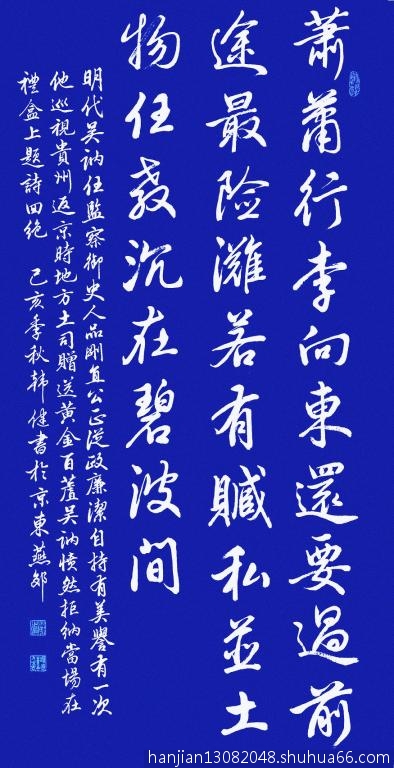 蕭蕭行李向東還要過前
途最险灘若有贓私並土
物任教沉在碧波間
明代吴訥任監察御史人品剛直公正從政廉潔自持有美譽有一次
他巡視貴州返京時地方土司贈送黃金百吴訥愤然拒納當場在
禮盒上題詩回絶 己亥季秋韩健書於京東燕郊
hanjian13082048.shuhua66.com